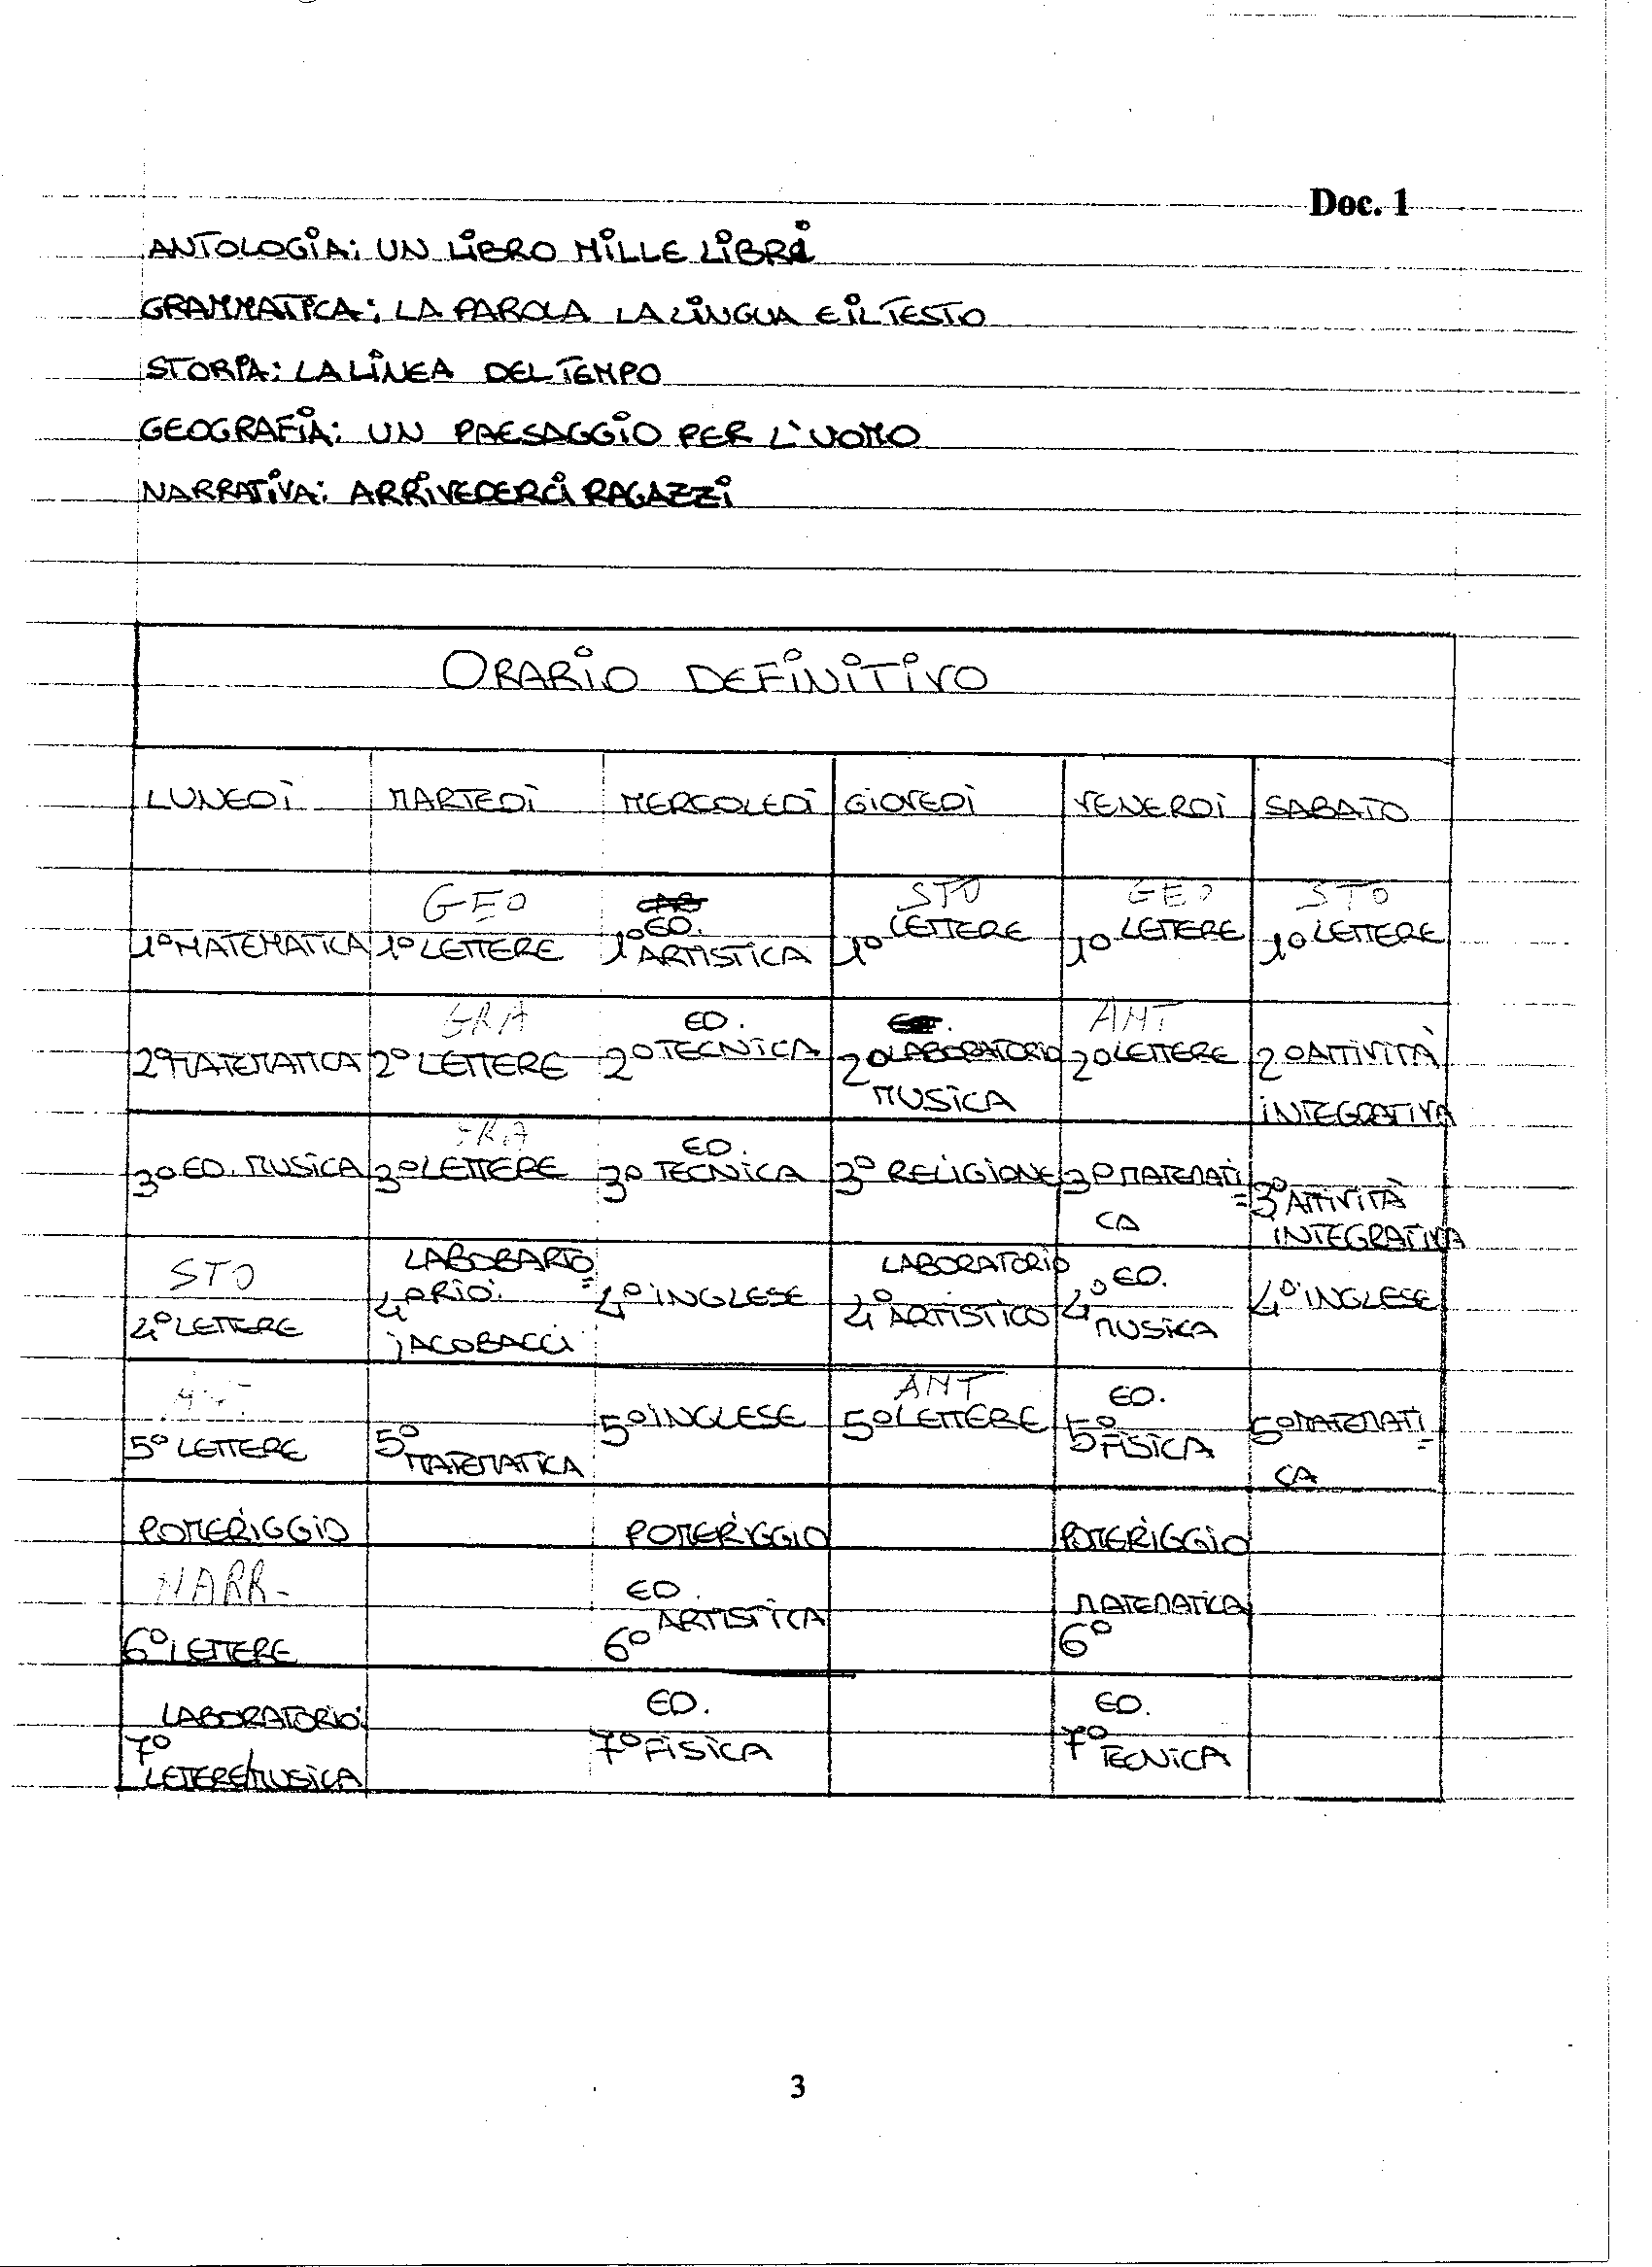 Doc. 1
ANTOLOGIA: UN LIBRO MILLE LIBRI
GRAMMATICA: LA PAROLA LA LINGUA E IL TESTO
STORIA: LA LINEA DEL TEMPO
GEOGRAFIA: UN PAESAGGIO PER L'UOMO
NARRATIVA: ARRIVEDERCI RAGAZZI
ORARIO DEFINITIVO
LUNEDÌ MARTEDÌ MERCOLEDÌ GIOVEDÌ VENERDÌ SABATO
GEO STO GEO STO
1° MATEMATICA 1° LETTERE 1° ED. ARTISTICA 1° LETTERE 1° LETTERE 1° LETTERE
GRA ANT
2° MATEMATICA 2° LETTERE 2° ED. TECNICA 2° LABORATORIO MUSICA 2° LETTERE 2° ATTIVITÀ INTEGRATIVA
GRA
3° ED. MUSICA 3° LETTERE 3° ED. TECNICA 3° RELIGIONE 3° MATEMATI=CA 3° ATTIVITÀ INTEGRATIVA
STO
4° LETTERE 4° LABOBARTO=ORIO: JACOBACCI 4° INGLESE 4° LABORATORIO ARTISTICO 4° ED. MUSICA 4° INGLESE
ANT
5° LETTERE 5° MATEMATICA 5° INGLESE 5° LETTERE 5° ED. FISICA 5° MATEMATI=CA
POMERIGGIO POMERIGGIO POMERIGGIO
NARR-
6° LETTERE 6° ED. ARTISTICA 6° MATEMATICA
7° LABORATORIO: LETTERE/MUSICA 7° ED. FISICA 7° ED. TECNICA
3